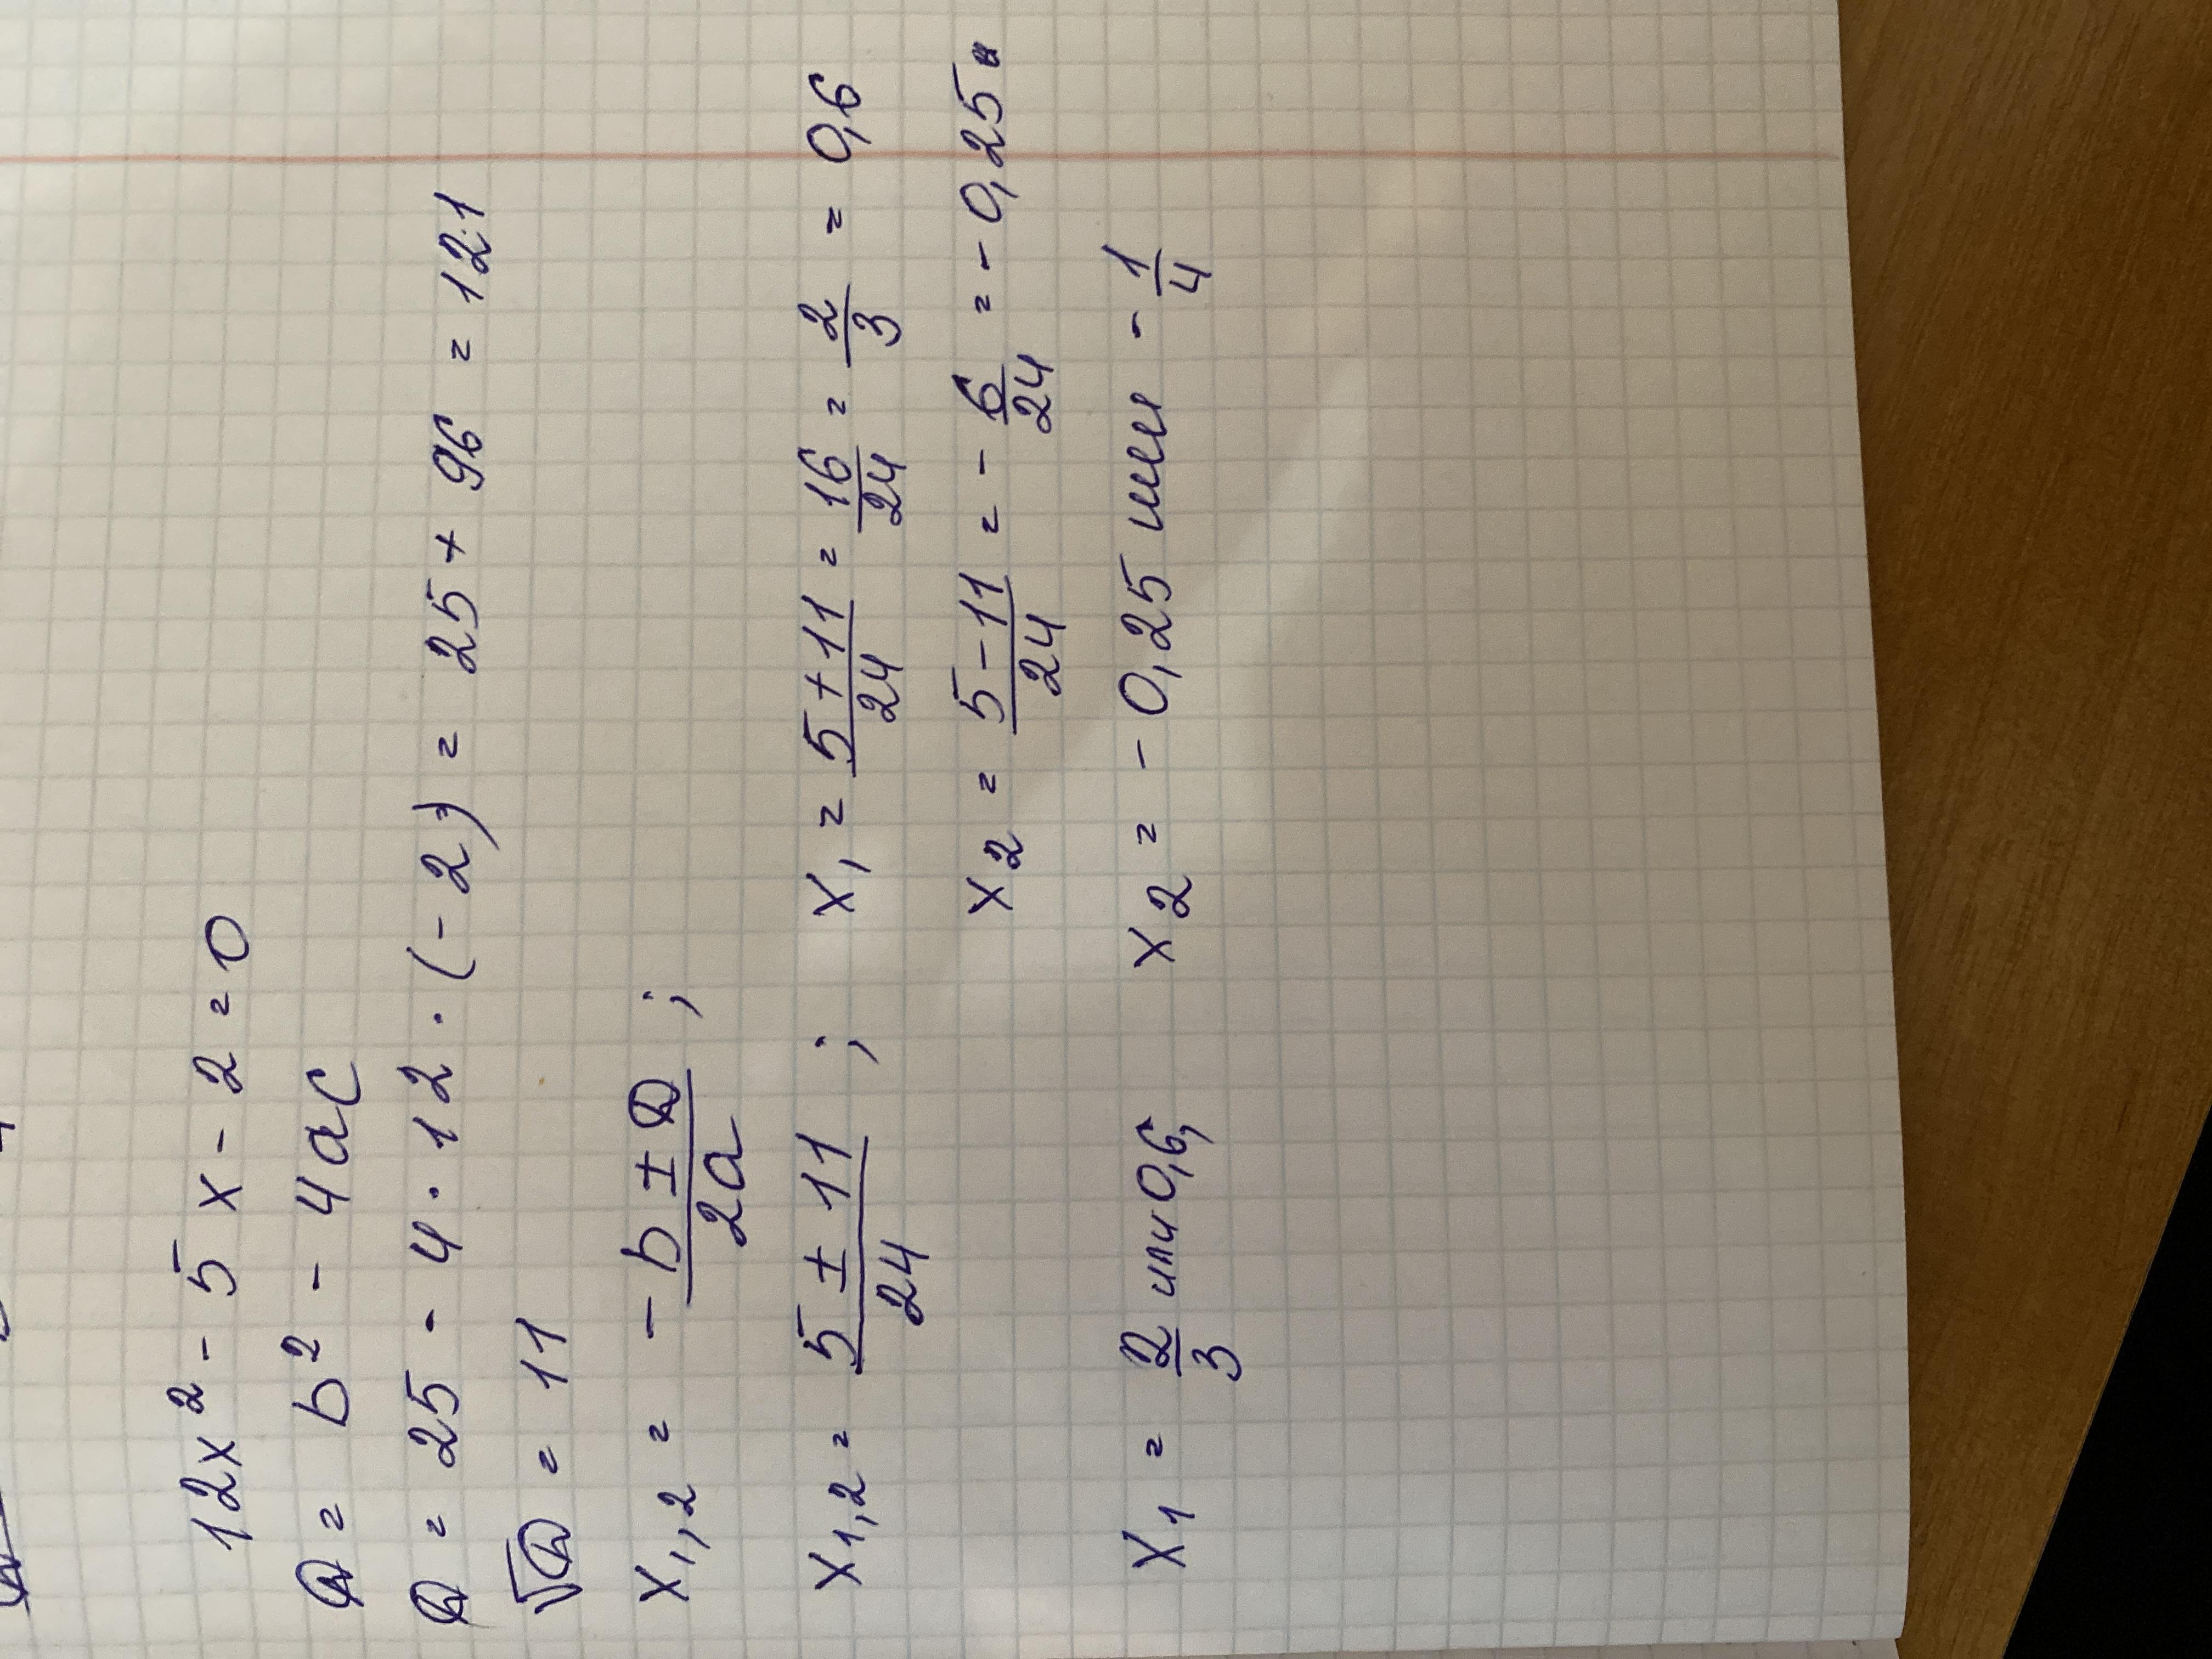 12x² - 5x - 2 = 0
D = b² - 4ac
D = 25 - 4 · 12 · (-2) = 25 + 96 = 121
√D = 11
x₁,₂ = -b ± D / 2a ;
x₁,₂ = 5 ± 11 / 24 ; x₁ = 5 + 11 / 24 = 16/24 = 2/3 = 0,6
x₂ = 5 - 11 / 24 = - 6/24 = - 0,25
x₁ = 2/3 или 0,6, x₂ = - 0,25 или - 1/4